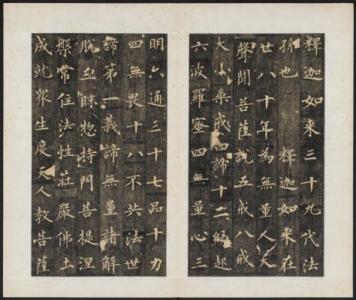 釋迦如來三十九代法
孫也　釋迦如來在
世八十年為無量人天
聲聞菩薩說五戒八戒
大小乘戒四諦十二緣起
六波羅蜜四無量心三
明六通三十七品十力
四無畏十八不共法世
諦第一義諦無量諸解
脫三昧惣持門菩提涅
槃常住法性莊嚴佛土
成就眾生度天人教菩薩